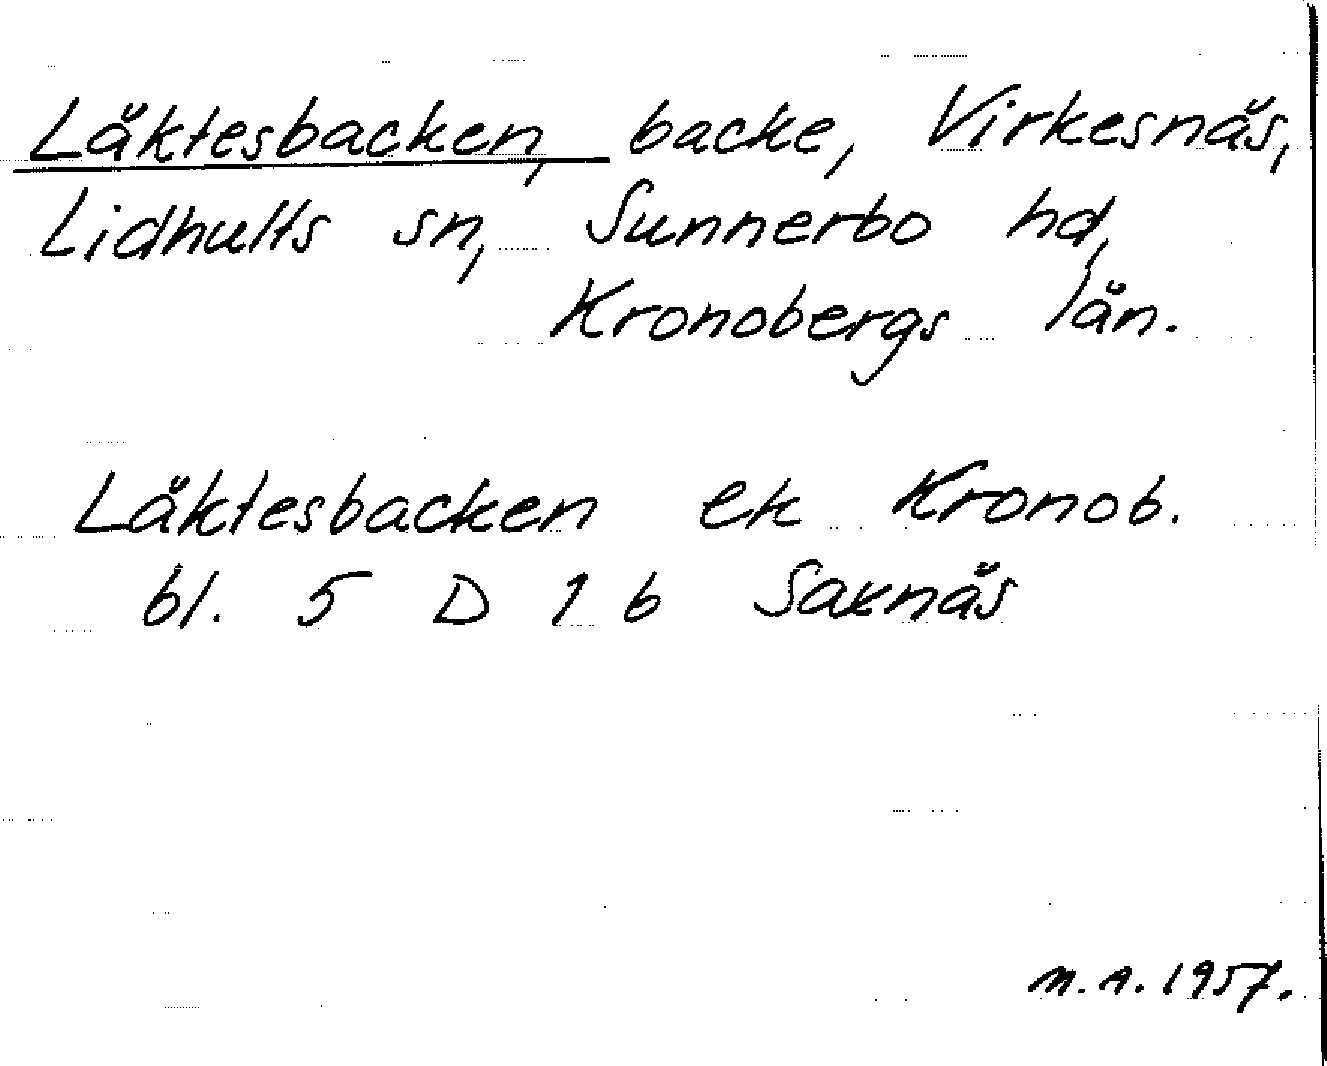 Läktesbacken, backe, Virkesnäs,
Lidhults sn, Sunnerbo hd,
Kronobergs län.
Läktesbacken ek Kronob.
bl. 5 D 1 b Saxnäs
M.A. 1957.